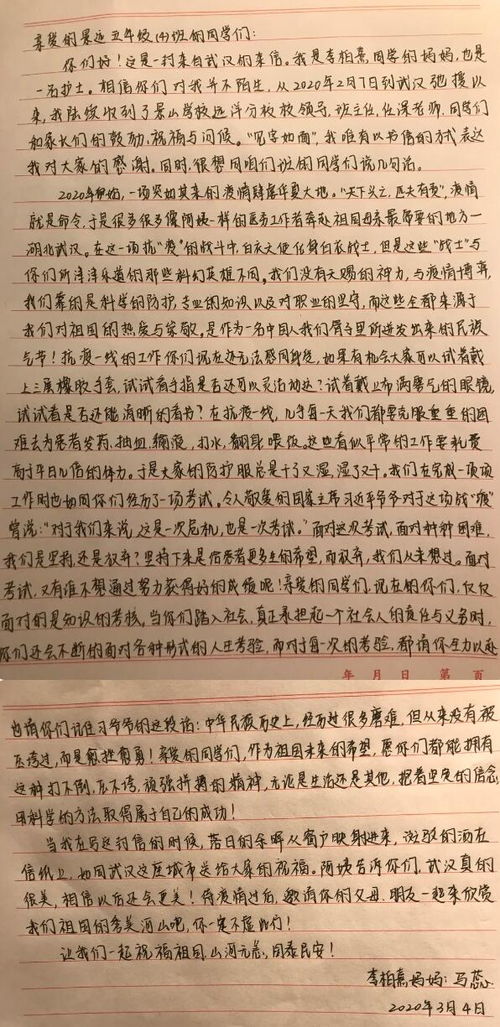 亲爱的景远五年级(4)班的同学们:
你们好!这是一封来自武汉的来信。我是李柏熹同学的妈妈,也是
一名护士。相信你们对我并不陌生,从2020年2月7日到武汉驰援以
来,我陆续收到了景山学校远洋分校校领导,班主任,任课老师,同学们
和家长们的鼓励,祝福与问候。“见字如面”,我唯有以书信的方式表达
我对大家的感谢。同时,很想同咱们班的同学们说几句话。
2020年伊始,一场突如其来的疫情肆虐华夏大地。“天下兴亡,匹夫有责”,疫情
就是命令,于是很多很多像阿姨一样的医务工作者奔赴祖国母亲最需要的地方—
湖北武汉。在这一场抗“疫”的战斗中,白衣天使化身白衣战士,但是这些“战士”与
你们所津津乐道的那些科幻英雄不同。我们没有天赐的神力,与疫情博弈,
我们靠的是科学的防护,专业的知识以及对职业的坚守,而这些全都来源于
我们对祖国的热爱与崇敬。是作为一名中国人我们骨子里所迸发出来的民族
气节!抗疫一线的工作你们现在还无法感同身受,如果有机会大家可以试着戴
上三层橡胶手套,试试看手指是否还可以灵活动达?试着戴上布满雾气的眼镜,
试试看是否还能清晰的看书?在抗疫一线,几乎每一天我们都要克服重重的困
难去为患者发药,抽血,输液,打水,翻身,喂饭。这些看似平常的工作要耗费
高于平日几倍的体力。于是大家的防护服总是干了又湿,湿了又干。我们在完成一项项
工作时也如同你们经历了一项考试。令人敬爱的国家主席习近平爷爷对于这场战“疫”
曾说:“对于我们来说,这是一次危机,也是一次考试。”面对这次考试,面对种种困难,
我们是坚持,还是放弃?坚持下来是给患者更多生的希望,而放弃,我们从未想过。面对
考试,又有谁不想通过努力获得好的成绩呢!亲爱的同学们,现在的你们,仅仅
面对的是知识的考核,当你们踏入社会,真正承担起一个社会人的责任与义务时,
你们还会不断的面对各种形式的人生考验,而对于每一次的考验,都请你全力以赴
年 月 日 第 页
也请你们记住习爷爷的这段话:中华民族历史上,经历过很多磨难,但从来没有被
压垮过,而是愈挫愈勇!亲爱的同学们,作为祖国未来的希望,愿你们都能拥有
这种打不倒,压不垮,顽强拼搏的精神,无论是生活还是其他,抱着坚定的信念,
用科学的方法,取得属于自己的成功!
当我在写这封信的时候,落日的余晖从窗户映射进来,斑驳的洒在
信纸上,如同武汉这座城市送给大家的祝福。阿姨告诉你们,武汉真的
很美,相信以后还会更美!待疫情过后,邀请你的父母,朋友一起来欣赏
我们祖国的秀美河山吧,你一定不虚此行!
让我们一起祝福祖国,山河无恙,国泰民安!
李柏熹妈妈:马蕊
2020年3月4日